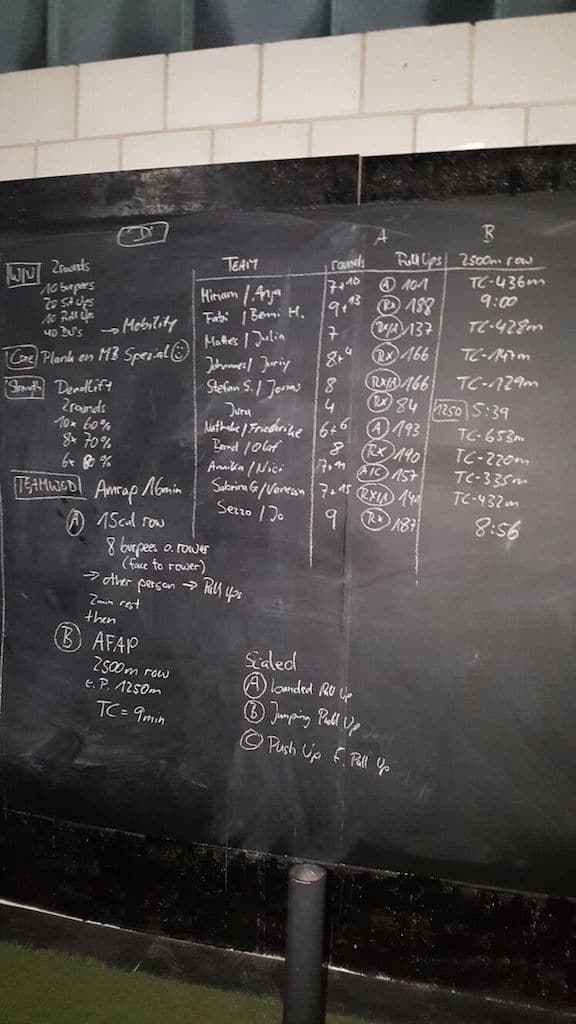 Di
W/U 2 rounds
10 burpees
20 Sit Ups
10 Pull Ups
40 DU's → Mobility
Core Plank on MB Spezial
Strength Deadlift
2 rounds
10x 60%
8x 70%
6x 80%
TEAMWOD Amrap 16min
A 15 cal row
8 burpees o. rower
(face to rower)
→ other person → Pull Ups
2min rest
then
B AFAP
2500m row
e.P. 1250m
TC = 9min
A B
TEAM rounds Pull Ups 2500m row
Miriam / Anja 7+10 A 101 TC-436m
Fabi / Benni H. 9+13 Rx 188 9:00
Mattes / Julia 7 Rx/A 137 TC-428m
Johannes / 8+4 Rx 166 TC-147m
Stefan S. / Jonas 8 Rx/A 166 TC-129m
Jura 4 Rx 84 1250 5:39
Nathalie / Friederike 6+6 A 193 TC-653m
Bernd / Olaf 8 Rx 190 TC-220m
Annika / Nici 7+11 A/C 157 TC-335m
Sabrina G / Vanessa 7+15 Rx/A TC-432m
Sezzo / Jo 9 Rx 187 8:56
Scaled
A banded Pull Up
B Jumping Pull Up
C Push Up f. Pull Up